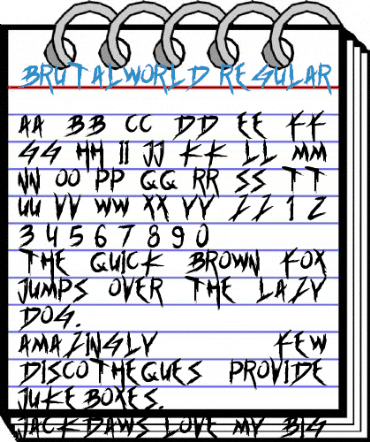 BRUTALWORLD REGULAR
AA BB CC DD EE FF
GG HH II JJ KK LL MM
NN OO PP QQ RR SS TT
UU VV WW XX YY ZZ 1 2
3 4 5 6 7 8 9 0
THE QUICK BROWN FOX
JUMPS OVER THE LAZY
DOG.
AMAZINGLY FEW
DISCOTHEQUES PROVIDE
JUKEBOXES.
JACKDAWS LOVE MY BIG